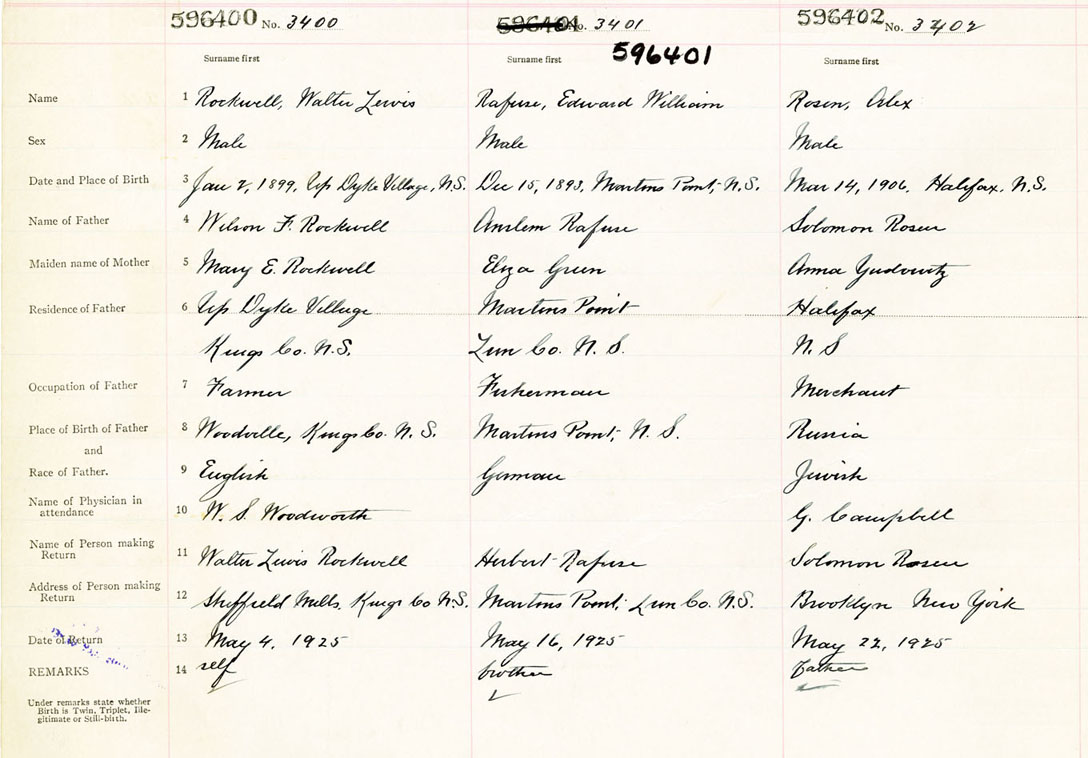 596400 No. 3400 596401 No. 3401 596402 No. 3402
596401
Surname first Surname first Surname first
Name 1 Rockwell, Walter Lewis Rafuse, Edward William Rosen, Alex
Sex 2 Male Male Male
Date and Place of Birth 3 Jan 2, 1899, Up Dyke Village, N.S. Dec 15, 1893, Martins Point, N.S. Mar 14, 1906. Halifax, N.S.
Name of Father 4 Wilson F. Rockwell Anslem Rafuse Solomon Rosen
Maiden name of Mother 5 Mary E. Rockwell Eliza Green Anna Yudowitz
Residence of Father 6 Up Dyke Village Martins Point Halifax
Kings Co. N.S. Lun Co. N. S. N. S
Occupation of Father 7 Farmer Fisherman Merchant
Place of Birth of Father 8 Woodville, Kings Co. N. S. Martins Point, N. S. Russia
and
Race of Father. 9 English German Jewish
Name of Physician in
attendance 10 W. S. Woodworth G. Campbell
Name of Person making
Return 11 Walter Lewis Rockwell Herbert Rafuse Solomon Rosen
Address of Person making
Return 12 Sheffield Mills, Kings Co N.S. Martins Point, Lun Co. N.S. Brooklyn New York
Date of Return 13 May 4, 1925 May 16, 1925 May 22, 1925
REMARKS 14 self brother father
Under remarks state whether
Birth is Twin, Triplet, Ille-
gitimate or Still-birth.